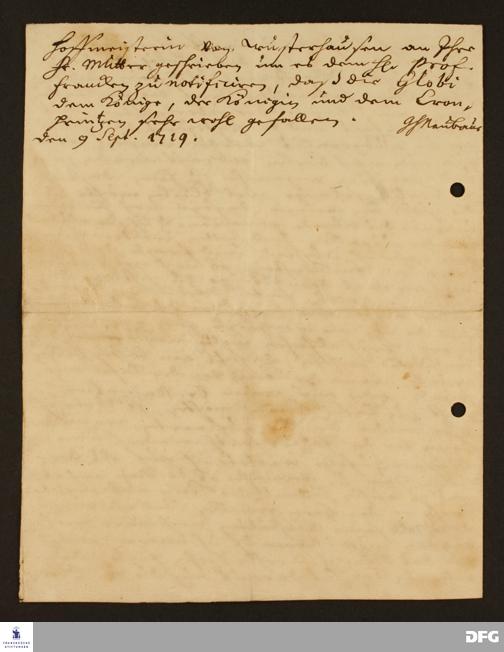 Hoffmeisterin von Wusterhausen an Ihre
Fr. Mutter geschrieben um es dem Hr. Prof.
Francken zu notificiren, daß die Globi
dem Könige, der Königin und dem Cron-
printzen sehr wohl gefallen.
GHNeubauer
den 9 Sept. 1719.
FRANCKESCHE
STIFTUNGEN
DFG